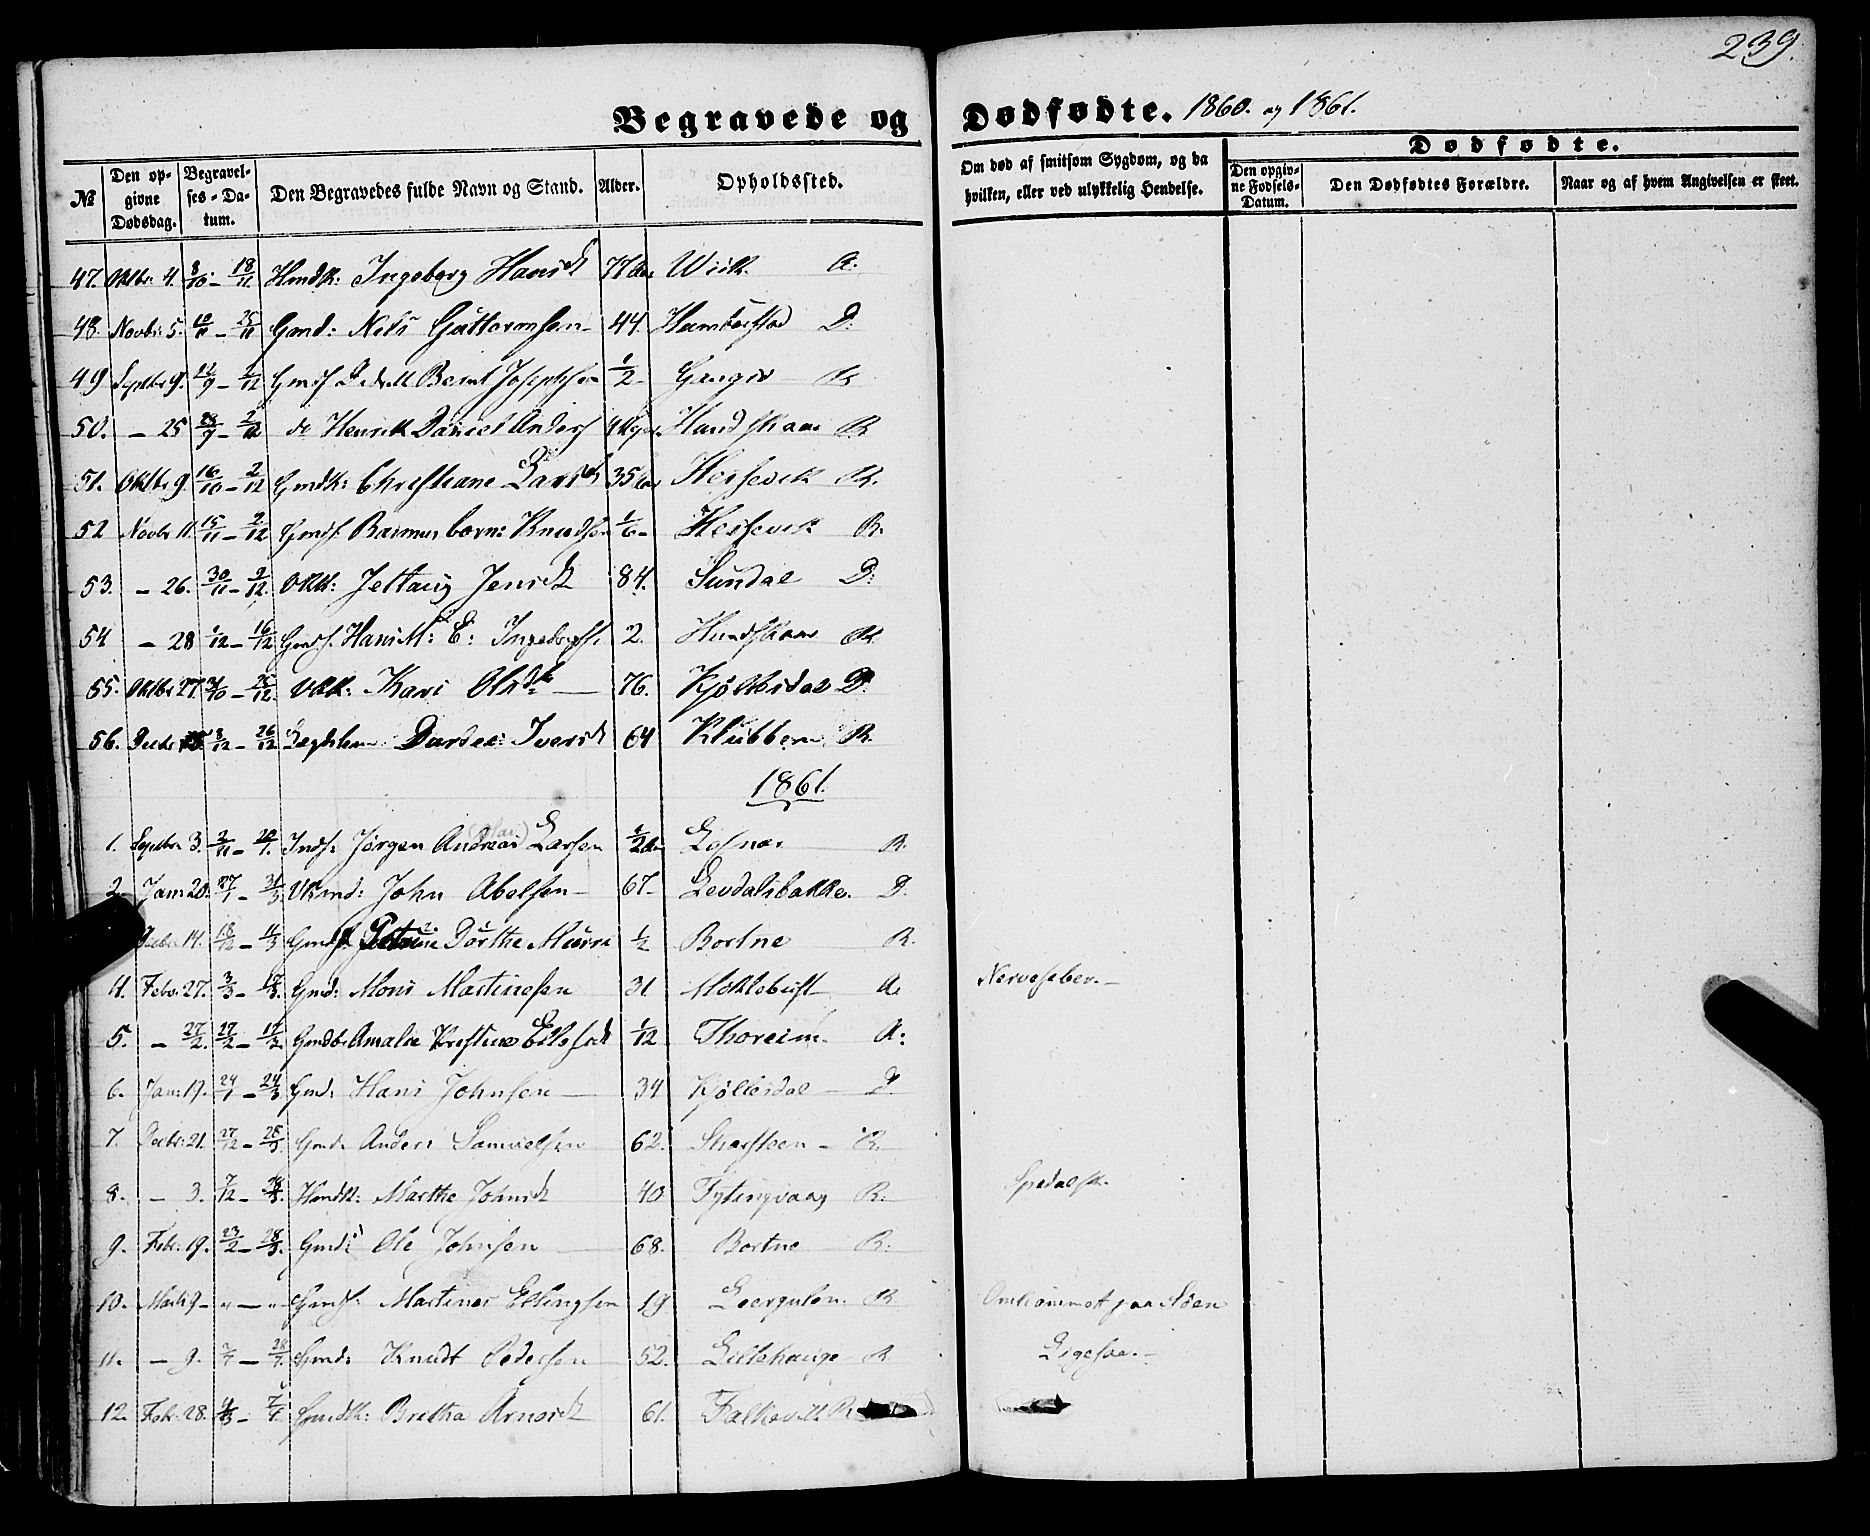 239.
Begravede og Dødfødte. 1860. og 1861.
№ Den opgivne Dødsdag. Begravelses-Datum. Den Begravedes fulde Navn og Stand. Alder. Opholdssted. Om død af smitsom Sygdom, og da hvilken, eller ved ulykkelig Hendelse. Dødfødte.
Den opgivne Fødsels-Datum. Den Dødfødtes Forældre. Naar og af hvem Angivelsen er skeet.
47. Oktbr: 4. 8/10 - 18/11 Hmdk: Ingeborg Hansd 77 Aar Wiik A.
48. Novbr: 5. 10/11 - 25/11 Gmd: Nils Guttormsen 44. Humborstad D:
49 Septbr 9. 12/9 - 2/12 Gmds Bernt Josephsen 1/2 Gangsø R
50. - 25 28/9 - 2/12 do Henrik Daniel Anders Hundskaar R
51. Oktbr 9. 16/10 - 2/12 Gmdk: Christiane Larsd 35 Aar Hessevik R.
52 Novbr 11. 15/11 - 2/12 Gmds. Rasmus Knudsen 1/6 Hessevik R.
53. - 26. 30/11 - 9/12. Jettaug Jensd 84. Sundal D:
54 - 28 1/12 - 16/12 Gmds. Hans M: E: 2. Hundskaar R
55. Oktbr 27. 31/10 - 26/12. Kari Olsd 76. Kjøllesdal D:
56. Decbr 8/12 - 26/12 Lægdslem Dordei Iversd 64 Klubben R.
1861.
1. Septbr 3. 2/11 - 20/1. Inds. Jørgen Andreas Larsen 1/2 Aar Lofnæs R.
2. Jan: 20. 27/1 - 31/3 John Abelsen 67. Levdalsbakke. D.
Decbr 14. 18/12 - 11/3 Petrine Dorthe 1/2 Bortne R.
4. Febr: 27. 3/3 - 17/3. Gmd: Mons Martinesen 31. Möklebust A.
Nervefeber.
5. - 27/2. 27/2 - 17/3. Amalie Kristine Eilefsd 1/12 Thoreim. A:
6. Jan: 19. 24/1 - 24/3 Gmd: Hans Johnsen 34 Kjøllesdal D.
7. Decbr: 21. 27/12 - 28/3. Gmd: Anders Samuelsen 62. Skarsteen R.
8. - 3. 7/12 - 28/3. Hmdk: Marthe Johnsd 40 Fytingvaag R.
Spedalsk.
9. Febr: 19. 23/2 - 28/3. Gmd: Ole Johnsen 68. Bortne R.
10. Marts 9 - " - " Gmds: Martines Ellingsen 19 Leergulen. R
Omkommet paa Søen
11. - 9. 2/4 - 28/4. Gmd: Knudt Pedersen 52. Lillehauge R
Ligesaa.
12. Febr: 28. 4/3 - 7/4. Gmdk: Brethe Arnesd 61. Falkevik R